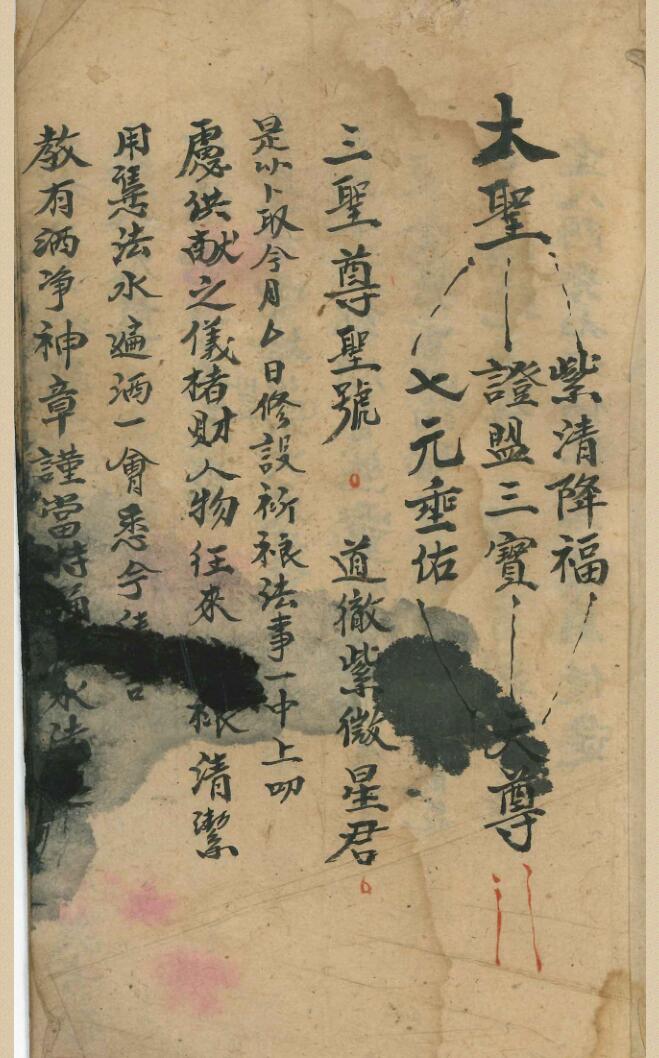 大聖
紫清降福
證盟三寶
七元垂佑
天尊
三聖尊聖號 道徹紫微星君
是以卜取今月厶日修設祈禳法事一中上叨
處供献之儀楮財人物往來 清潔
用慿法水遍洒一會悉令
教有洒净神章謹當持誦 水法